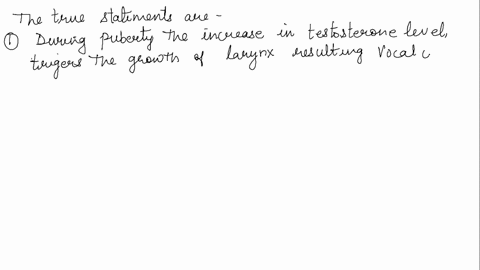 The true statements are -
① During puberty the increase in testosterone level,
trigers the growth of larynx resulting Vocal c